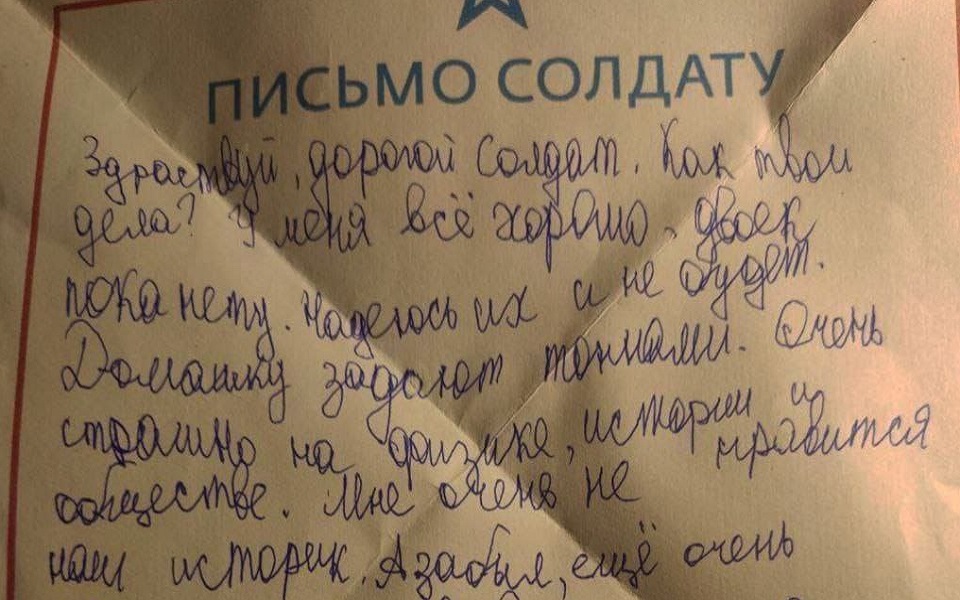 ПИСЬМО СОЛДАТУ
Здраствуй, дорогой солдат. Как твои
дела? У меня всё хорошо, двоек
пока нету. Надеюсь их и не будет.
Домашку задают тоннами. Очень
страшно на физике, истории и
обществе. Мне очень не нравится
наш историк. А забыл, ещё очень